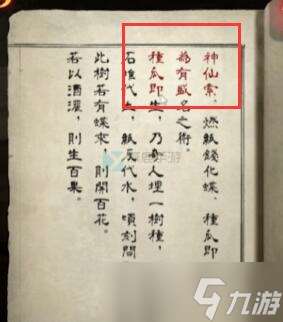 神仙索，燃紙錢化蝶，種瓜即
為有盛名之術。
種瓜即生，乃奇人埋一樹種，
石唯代土，紙灰代水，頃刻間
此樹若有蝶來，則開百花。
若以酒灌，則生百果。
九游